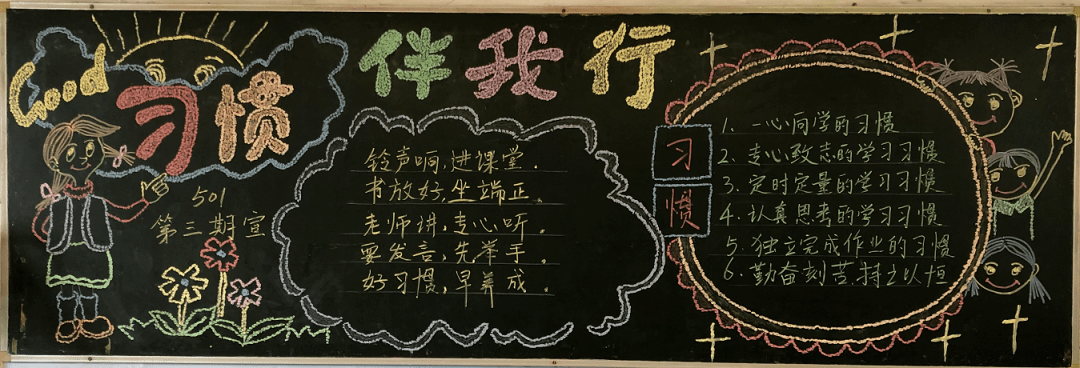 Good
习惯
伴我行
501
第三期宣
铃声响,进课堂.
书放好,坐端正.
老师讲,专心听.
要发言,先举手.
好习惯,早养成.
习惯
1. 一心向学的习惯
2. 专心致志的学习习惯
3. 定时定量的学习习惯
4. 认真思考的学习习惯
5. 独立完成作业的习惯
6. 勤奋刻苦.持之以恒